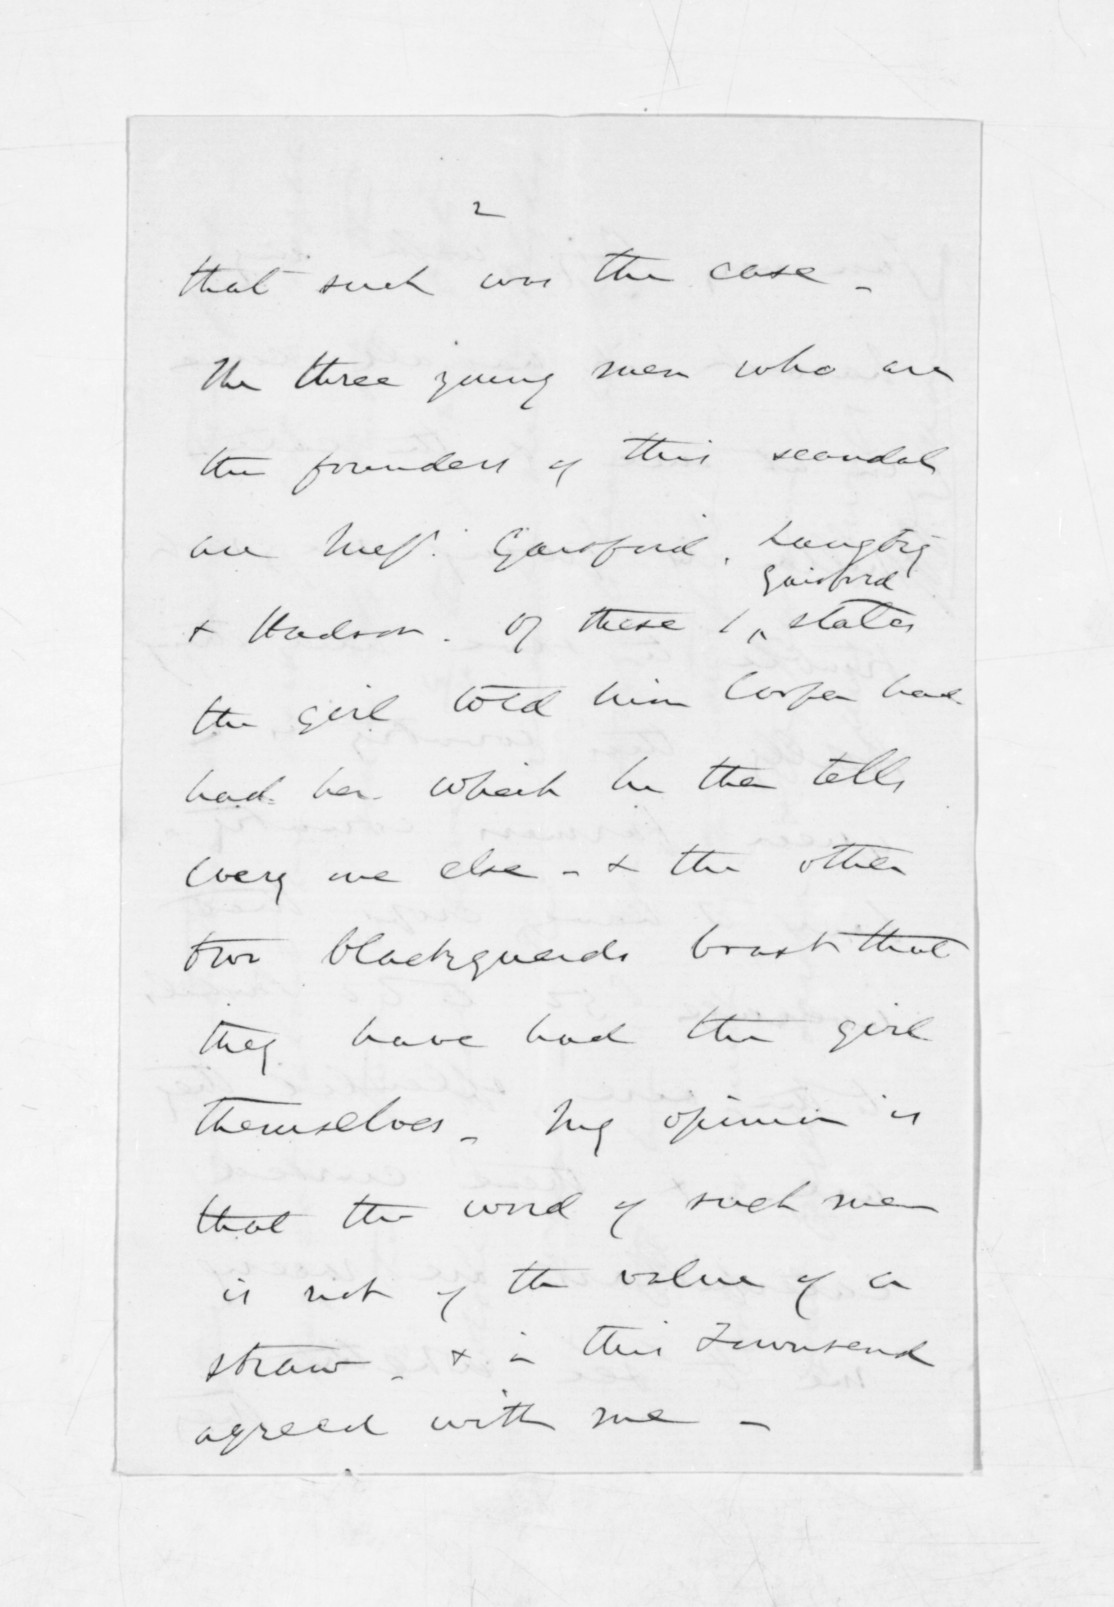 2
that such was the case -
The three young men who are
the founders of this scandal
are Messrs. Gaisford, Langtry
Gaisford
& Hudson. Of these 1, ^ states
the girl told him Cooper had
had her. Which he then tells
every one else - & the other
two blackguards boast that
they have had the girl
themselves - My opinion is
that the word of such men
is not of the value of a
straw - & in this Townsend
agreed with me -